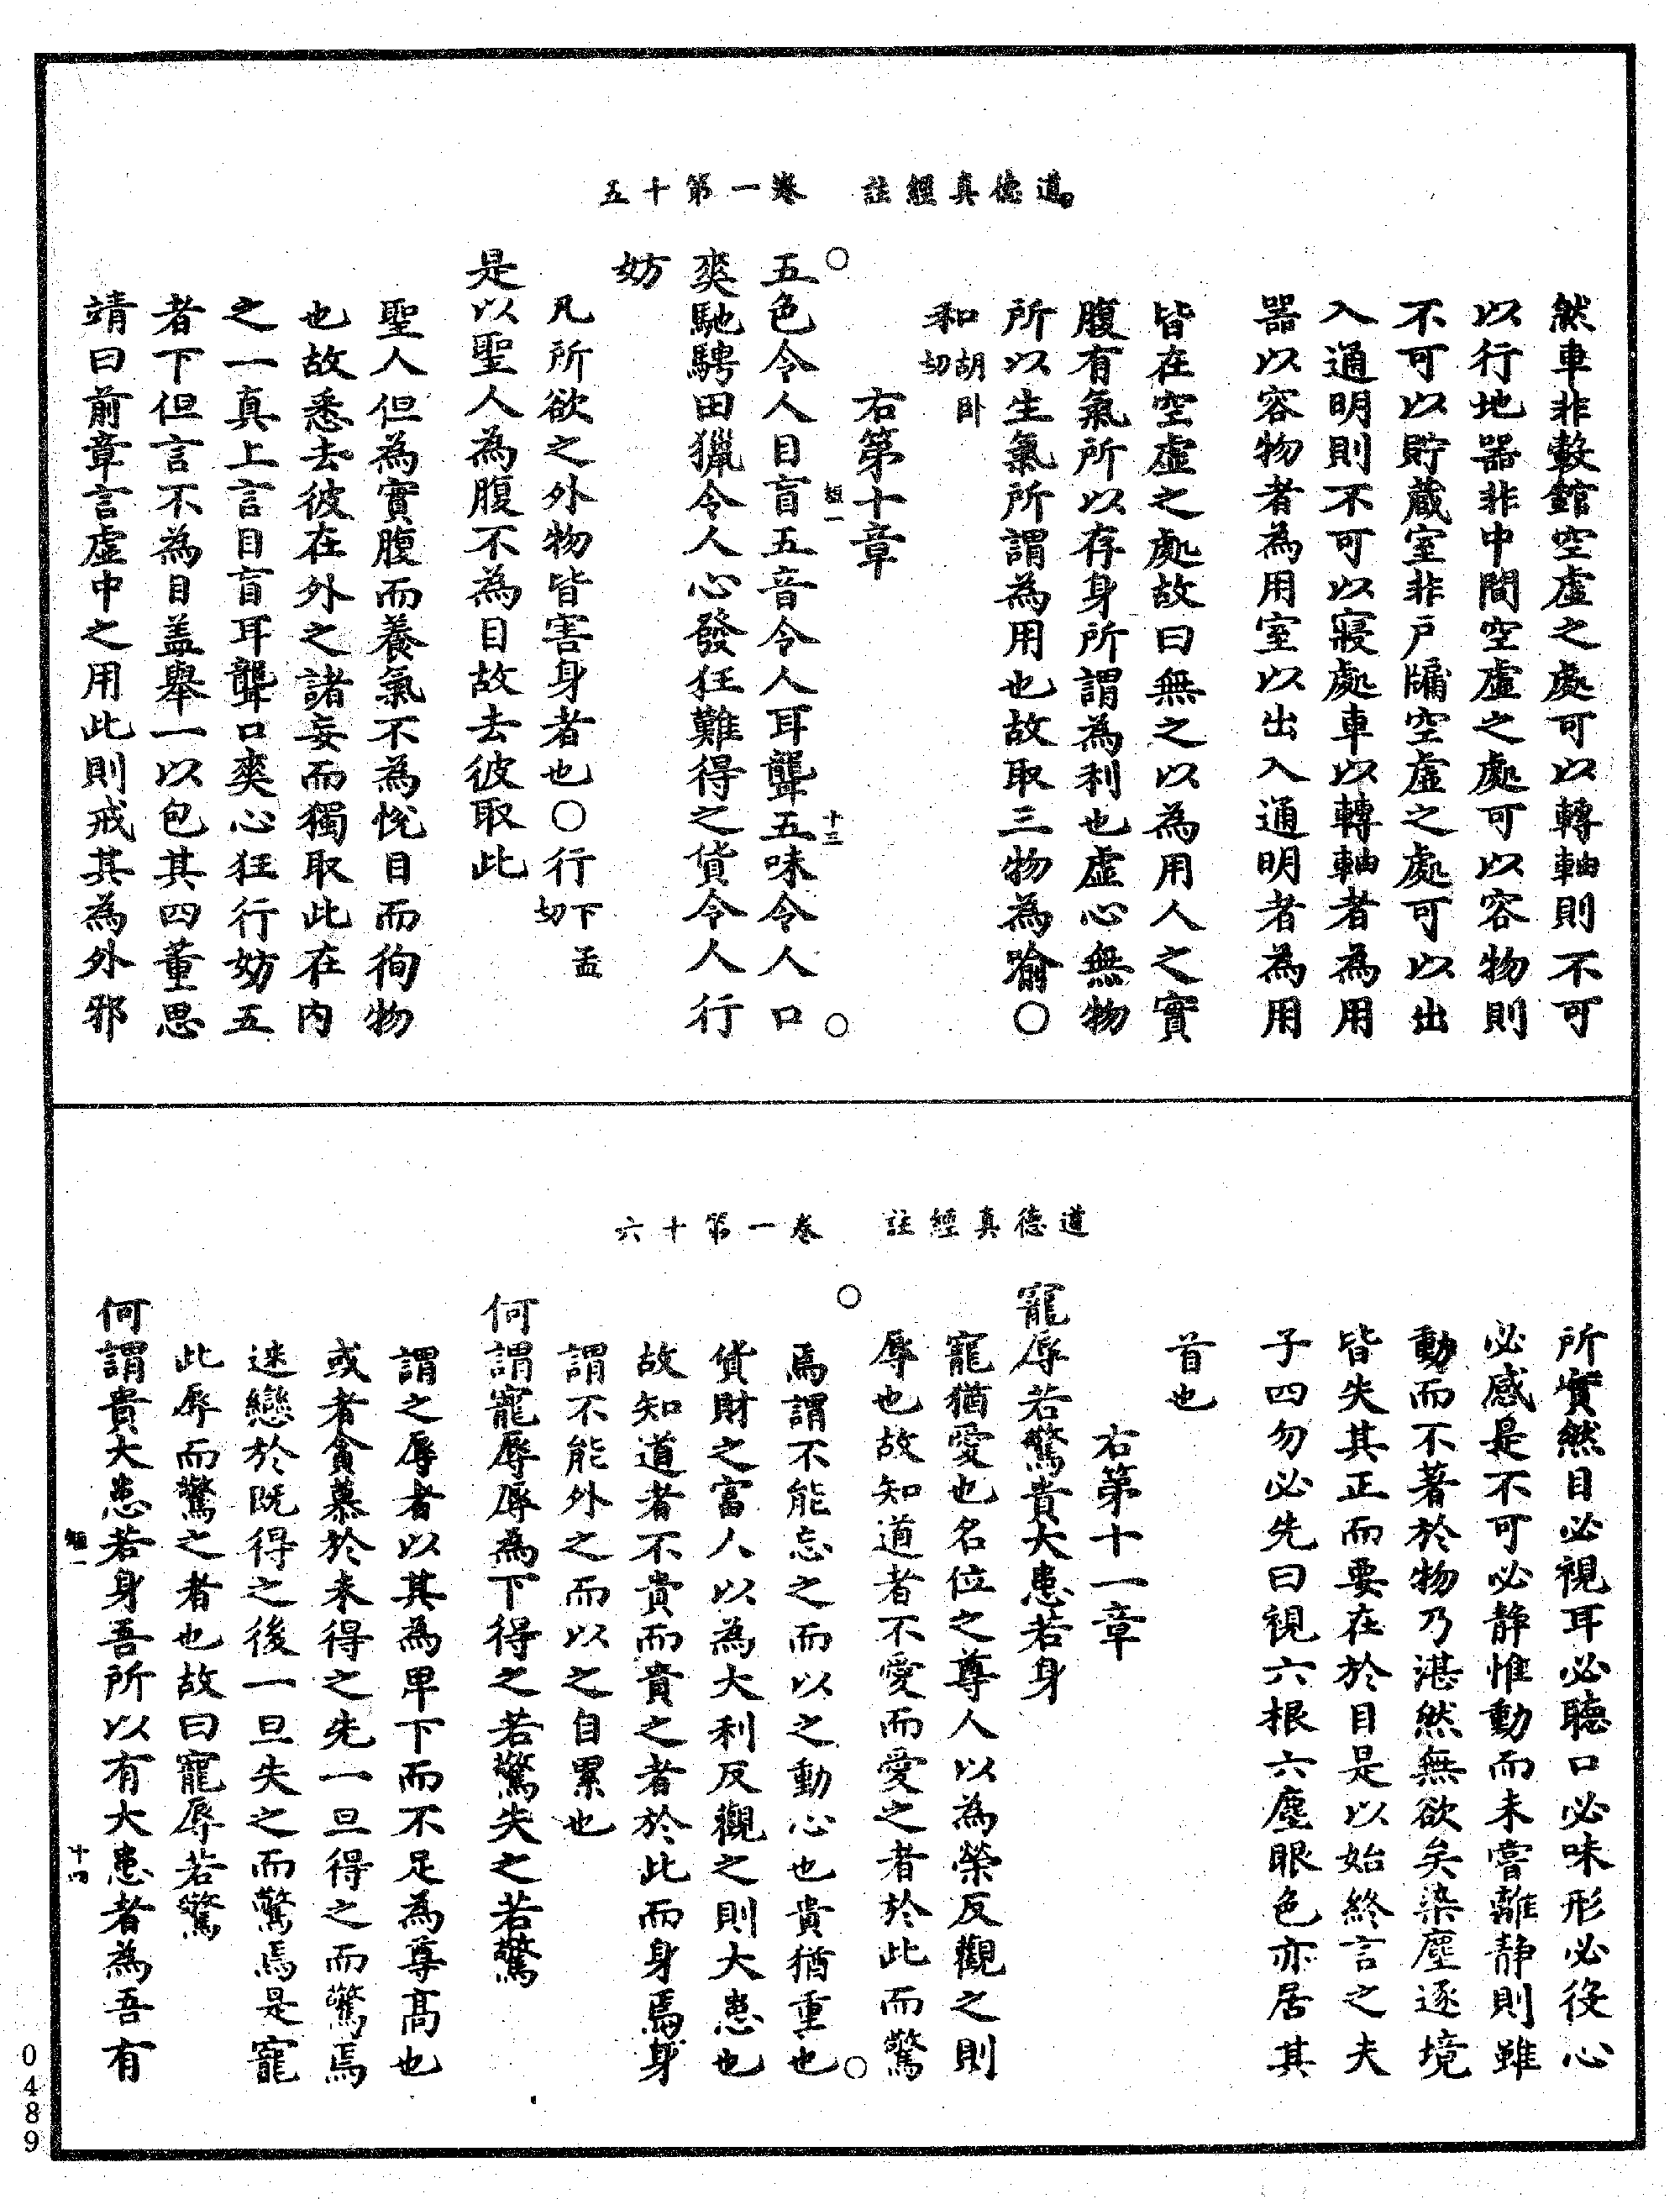 道德真經註　卷一第十五
然車非轂錧空虛之處可以轉軸則不可
以行地器非中間空虛之處可以容物則
不可以貯藏室非戶牖空虛之處可以出
入通明則不可以寢處車以轉軸者為用
器以容物者為用室以出入通明者為用
皆在空虛之處故曰無之以為用人之實
腹有氣所以存身所謂為利也虛心無物
所以生氣所謂為用也故取三物為喻○
和胡卧切
右第十章
短一　十三
五色令人目盲五音令人耳聾五味令人口
爽馳騁田獵令人心發狂難得之貨令人行
妨
凡所欲之外物皆害身者也○行下孟切
是以聖人為腹不為目故去彼取此
聖人但為實腹而養氣不為悅目而徇物
也故悉去彼在外之諸妄而獨取此在內
之一真上言目盲耳聾口爽心狂行妨五
者下但言不為目盖舉一以包其四董思
靖曰前章言虛中之用此則戒其為外邪
道德真經註　卷一第十六
所實然目必視耳必聽口必味形必役心
必感是不可必靜惟動而未嘗離靜則雖
動而不著於物乃湛然無欲矣染塵逐境
皆失其正而要在於目是以始終言之夫
子四勿必先曰視六根六塵眼色亦居其
首也
右第十一章
寵辱若驚貴大患若身
寵猶愛也名位之尊人以為榮反觀之則
辱也故知道者不愛而愛之者於此而驚
焉謂不能忘之而以之動心也貴猶重也
貨財之富人以為大利反觀之則大患也
故知道者不貴而貴之者於此而身焉身
謂不能外之而以之自累也
何謂寵辱辱為下得之若驚失之若驚
謂之辱者以其為卑下而不足為尊高也
或者貪慕於未得之先一旦得之而驚焉
迷戀於既得之後一旦失之而驚焉是寵
此辱而驚之者也故曰寵辱若驚
何謂貴大患若身吾所以有大患者為吾有
短一　十四
0489